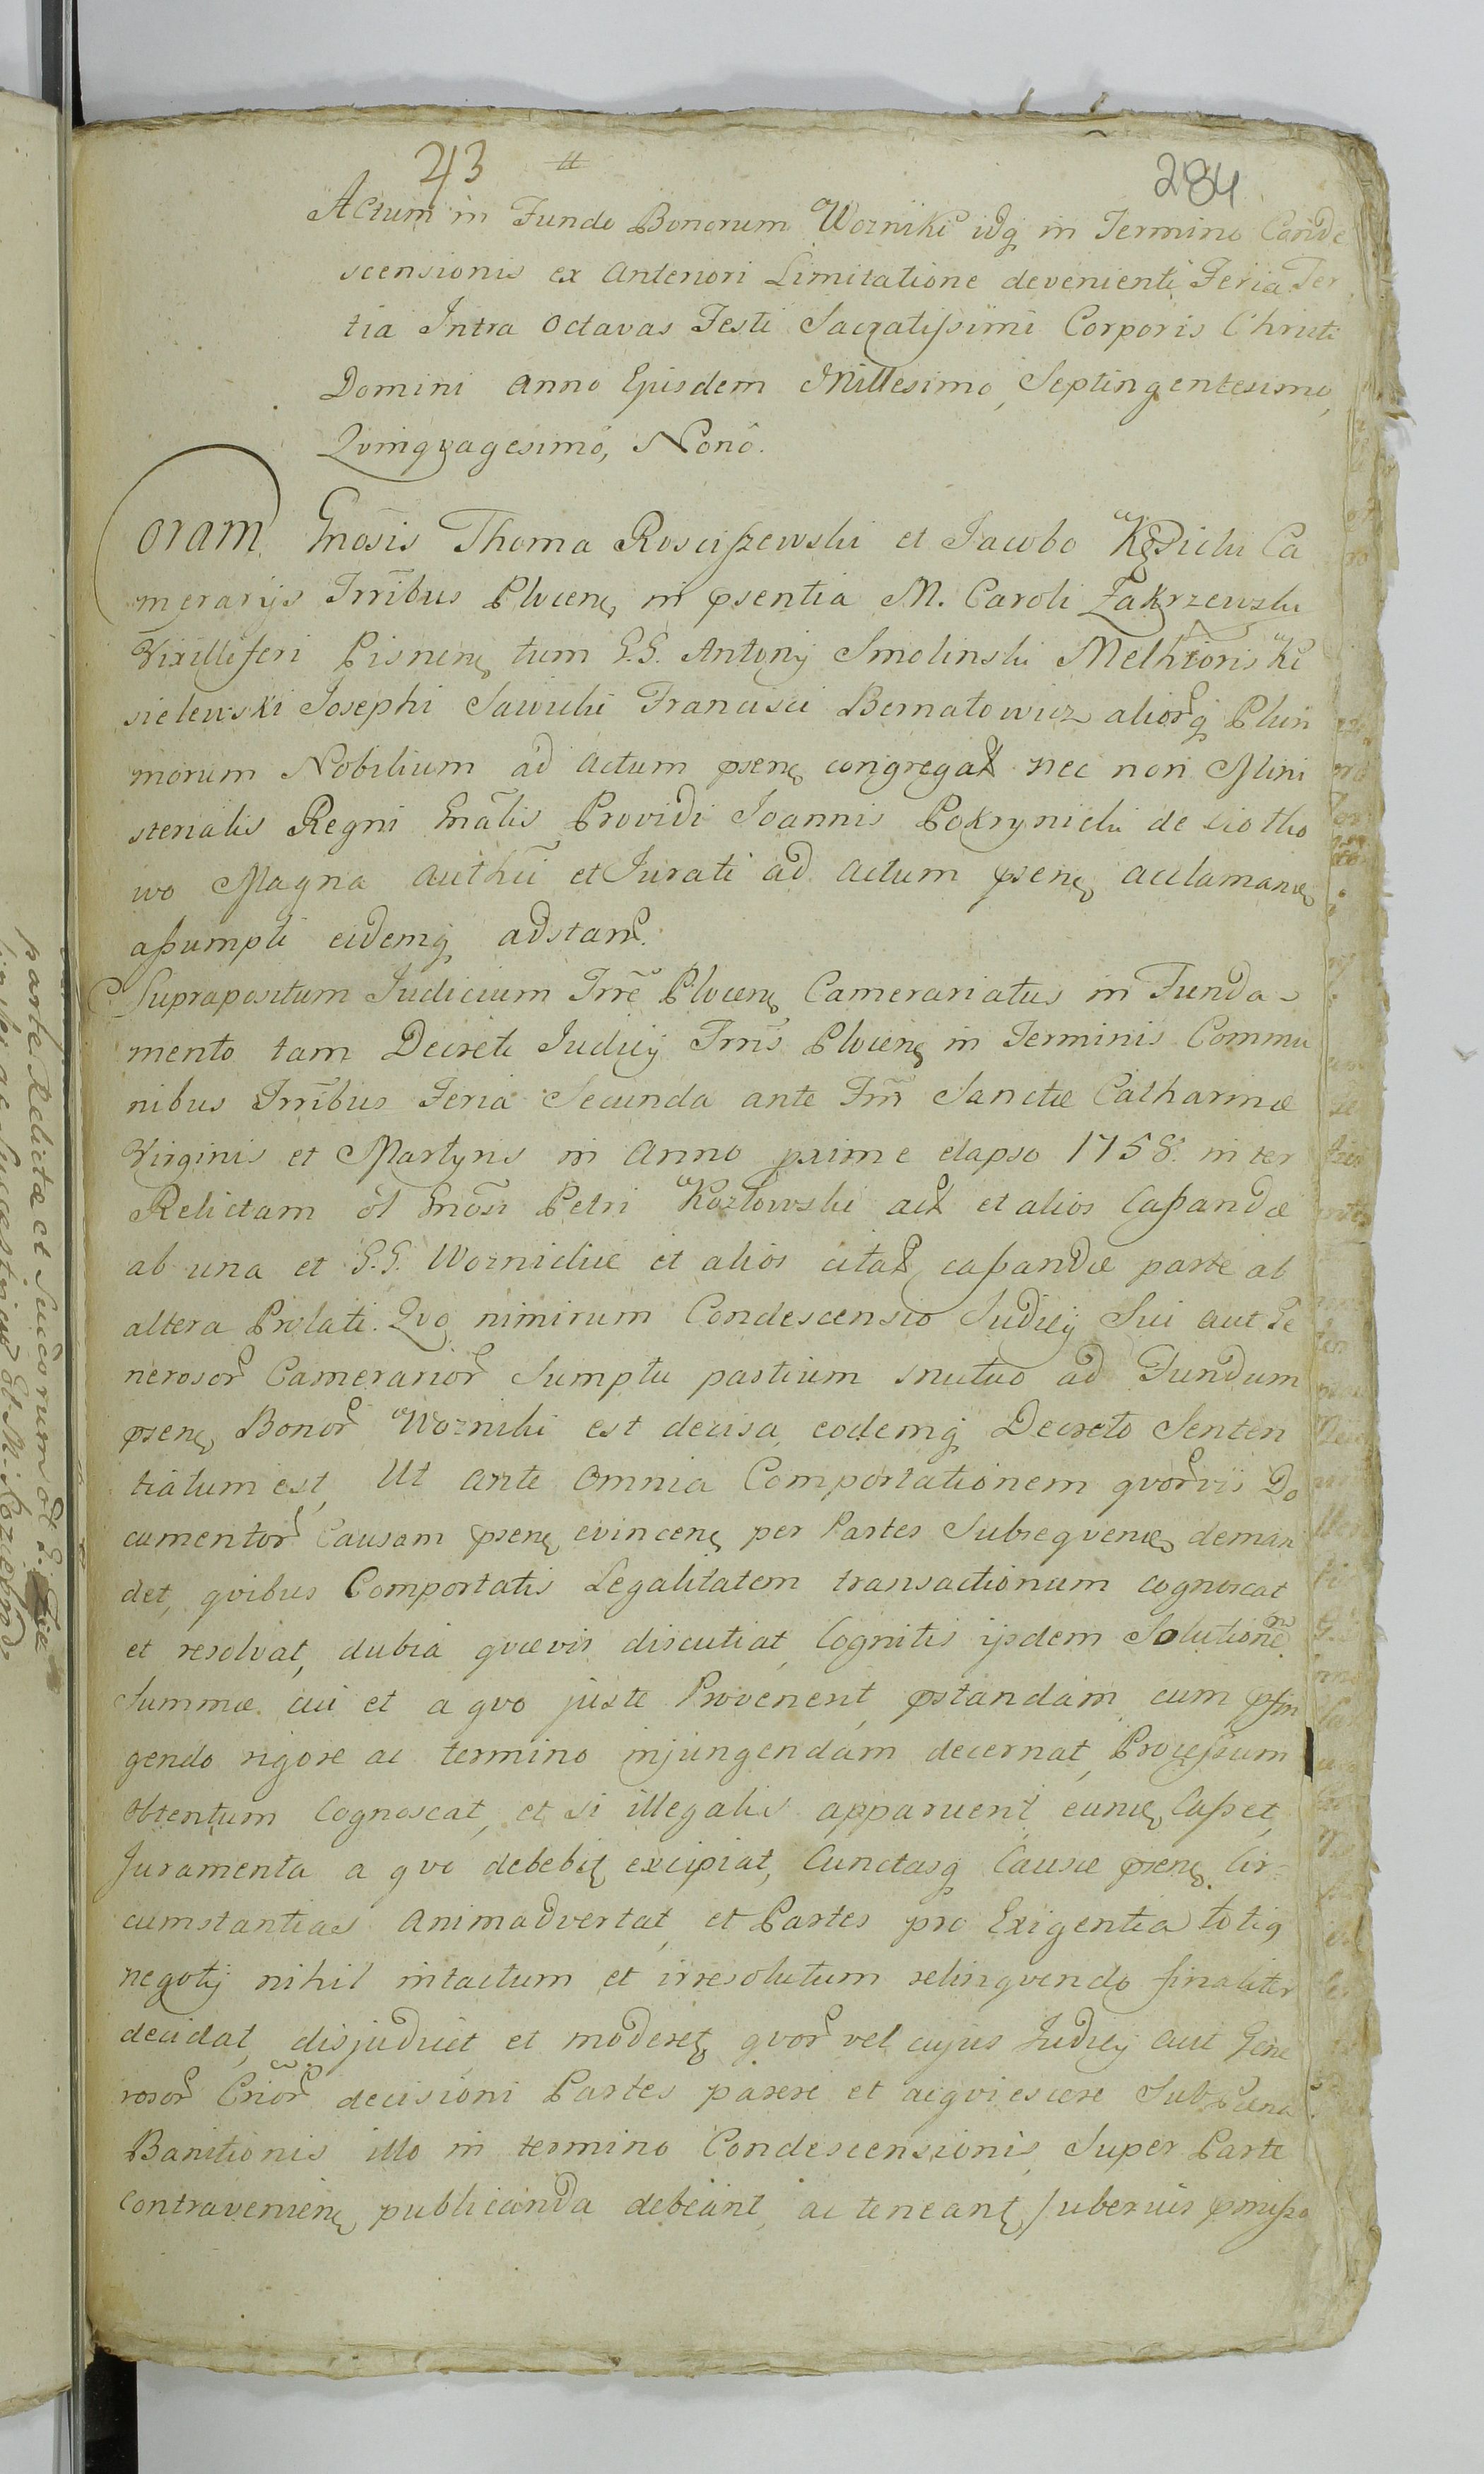 43 #
284
Actum in Fundo Bonorum Wozniki idq in Termino Conde
scensionis ex Anteriori Limitatione devenienti Feria Ter
tia Intra Octavas Festi Sacratissimi Corporis Christi
Domini Anno Ejusdem Millesimo, Septingentesimo,
Qvinqvagesimo, Nono.
Coram Gnosis Thoma Rosciszewski et Jacobo Kędzicki Ca
merarijs Trribus Plocen in psentia M. Caroli Zakrzewski
Vixilliferi Visnen tum G.G. Antonij Smolinski Melhioris Ki
sielewski Josephi Sawicki Francisci Bernatowicz aliorq Pluri
morum Nobilium ad Actum psen congregat nec non Mini
sterialis Regni Gnalis Providi Joannis Pokrynicki de
wo Magna Authu et Jurati ad Actum psen acclamand
assumpti eidemq adstan.
Suprapositum Judicium Trre Plocen Camerariatus in Funda
mento tam Decreti Judicij Trris Plocen in Terminis Commu
nibus Trribus Feria Secunda ante Fm Sanctæ Catharinæ
Virginis et Martyris in Anno pxime elapso 1758. inter
Relictam ol Gnosi Petri Kozlowski act et alios Cassandæ
ab una et G.G. Woznickie et alios citat cassandæ parte ab
altera Prolati. Qvo nimirum Condescensio Judicij Sui aut Ge
neroror Camerarior Sumptu partium mutuo ad Fundum
psen Bonor Wozniki est decisa eodemq Decreto Senten
tiatum est, Ut ante Omnia Comportationem qvorvis Do
cumentor Causam psen evincen per Partes Subseqven deman
det, qvibus Comportatis Legalitatem transactionum cognoscat
et resolvat, dubia qvævis discutiat, Cognitis ijsdem Solutione
Summæ cui et a qvo juste Provenerit, pstandam cum pfin
gendo rigore ac termino injungendam decernat, Processum
Obtentum Cognoscat, et si illegalis apparuerit eund Casset,
Juramenta a qvo debebit excipiat, Cunctasq Causæ psen Cir
cumstantias Animadvertat, et Partes pro Exigentia totiq
negotij nihil intactum et irresolutum relinqvendo finaliter
decidat, disjudicet et moderet, qvor vel cujus Judicij aut Gene
rosor Crior decisioni Partes parere et acqviescere Sub Pœna
Banitionis illo in termino Condescensionis Super Parte
Contravenien publicanda debeant, ac teneant, uberius pmisso